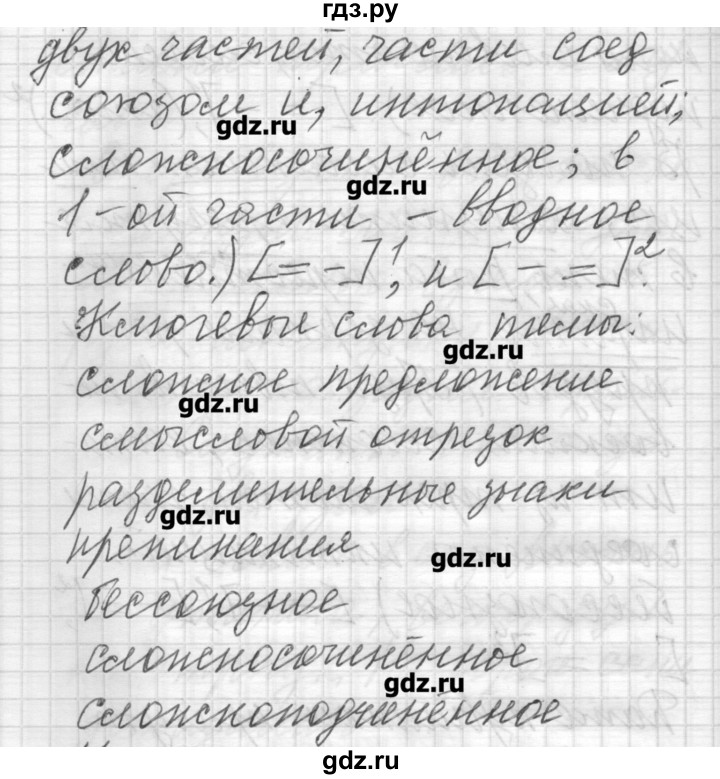 гдз.ру
двух частей, части соед
союзом и, интонацией;
gdz.ru
сложносочинённое; в
gdz.ru
1-ой части – вводное
слово.) [= –]¹, и [– =]².
Ключевые слова темы:
gdz.ru
сложное предложение
gdz.ru
смысловой отрезок
разделительные знаки
gdz.ru
препинания
gdz.ru
бессоюзное
сложносочинённое
gdz.ru
сложноподчинённое
gdz.ru